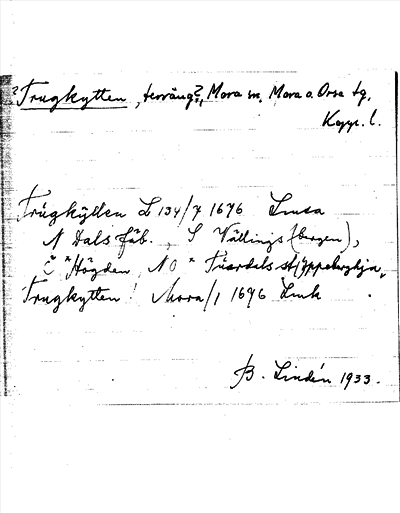 ? Trugkytten, terräng?, Mora sn, Mora o. Orsa tg,
Kopp. l.
Trugkytten L 134/7 1676 Lmsa
N Dals fäb., S Vällings (bergen),
Högden, NO
Trugkytten! Mora/1 1696 Lmk
B. Lindén 1933.